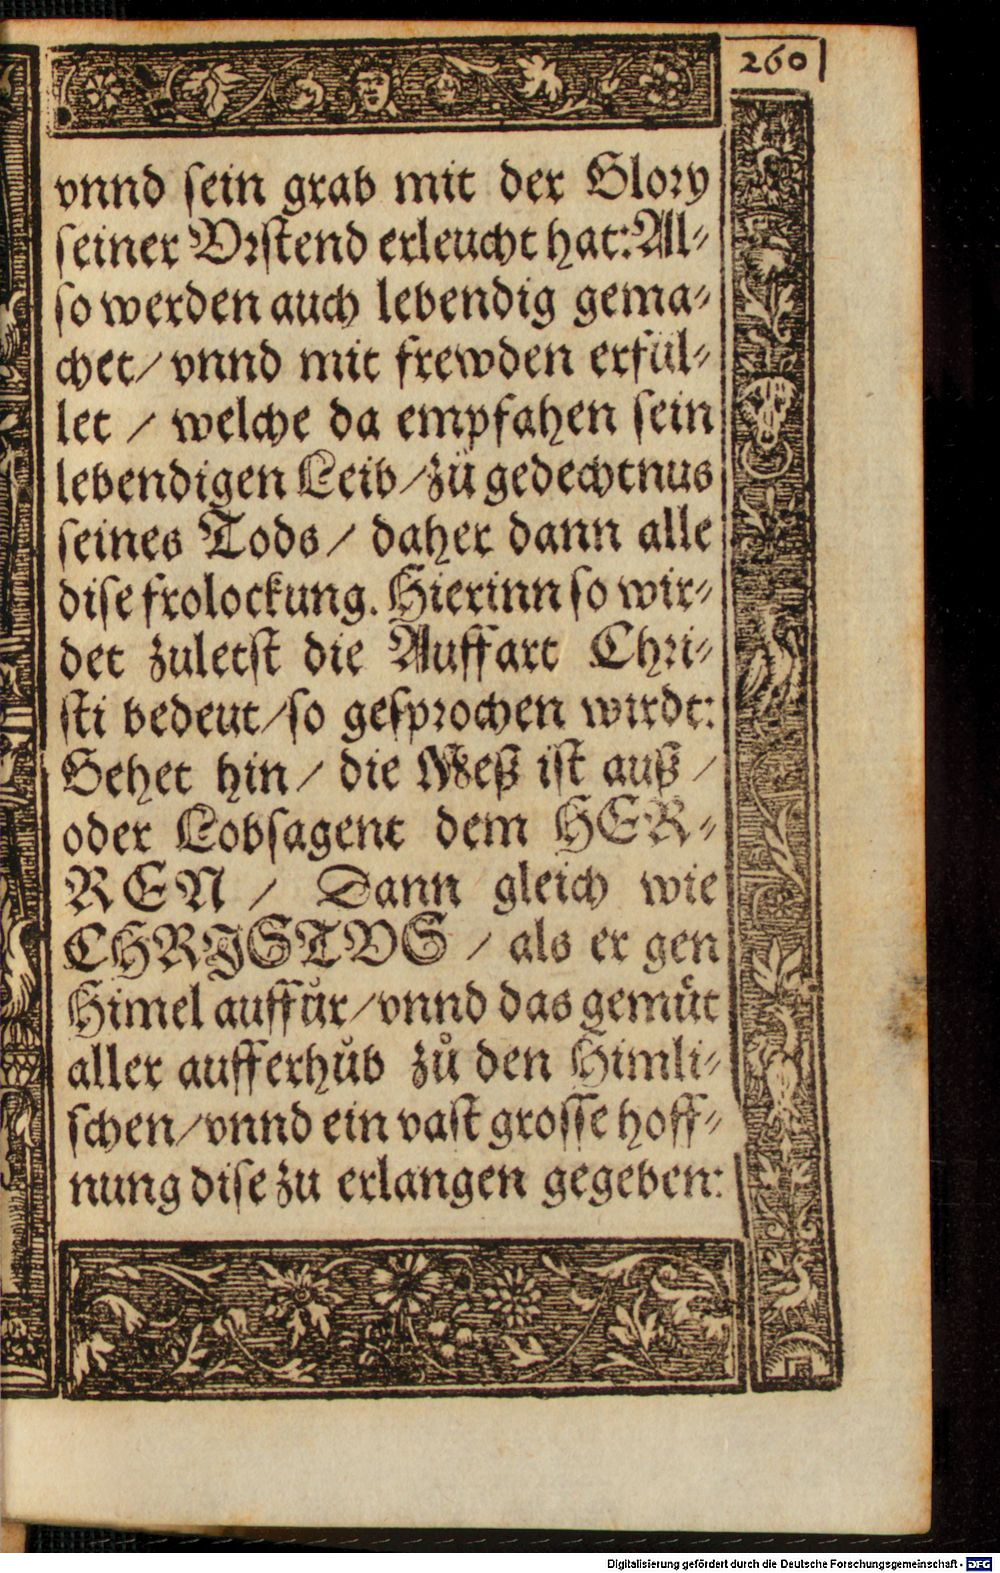 260
vnnd sein grab mit der Glory
seiner Vrstend erleucht hat: Al-
so werden auch lebendig gema-
chet / vnnd mit frewden erfül-
let / welche da empfahen sein
lebendigen Leib / zů gedechtnus
seines Tods / daher dann alle
dise frolockung. Hierinn so wir-
det zuletst die Auffart Chri-
sti bedeut / so gesprochen wirdt:
Gehet hin / die Meß ist auß /
oder Lobsagent dem HER-
REN / Dann gleich wie
CHRISTVS / als er gen
Himel auffůr / vnnd das gemüt
aller aufferhůb zů den Himli-
schen / vnnd ein vast grosse hoff-
nung dise zu erlangen gegeben:
Digitalisierung gefördert durch die Deutsche Forschungsgemeinschaft - DFG